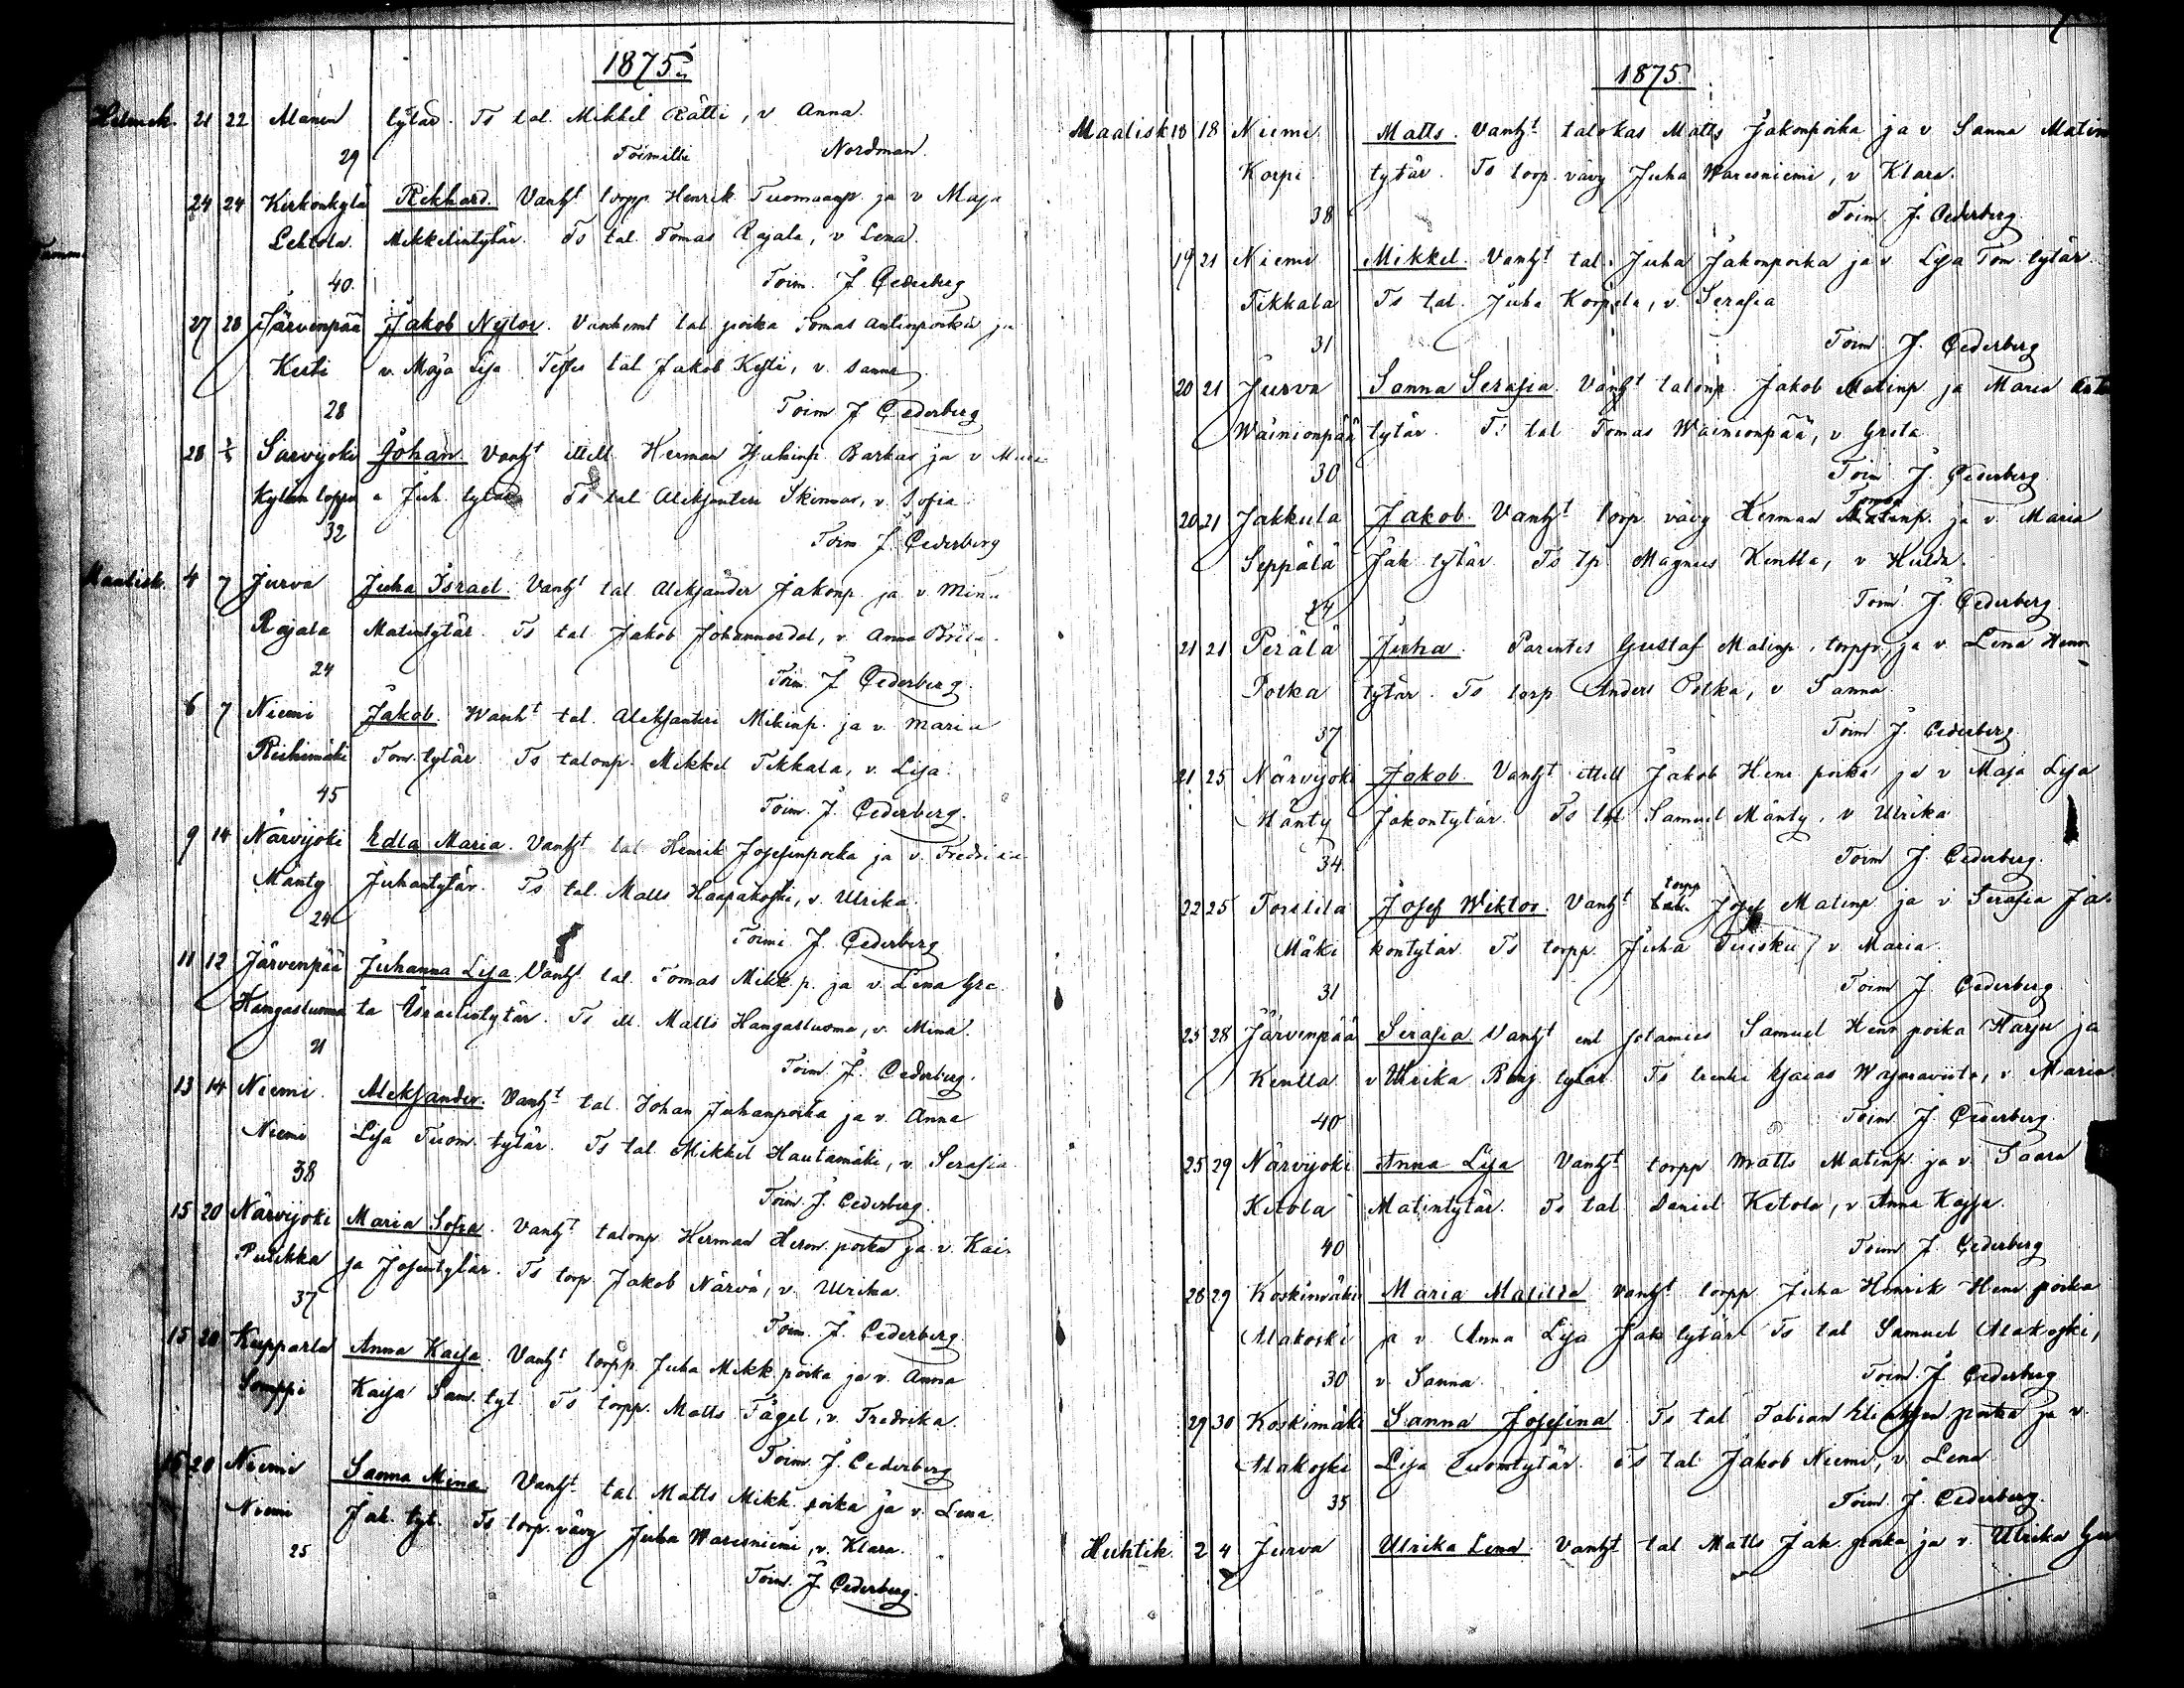 1875
Helmik. 21 22 Alanen tytär. Ts tal. Mikkel Rätti, v Anna.
29 Toimitti Nordman.
24 24 Kirkonkylä Rikhard. Vanht torpp. Henrik Tuomaanp. ja v Maja
Lehtola. Mikkelintytär. Ts tal. Tomas Rajala, v Lena.
40. Toim. J. Cederberg
27 28 Järvenpää Jakob Nylor. Vanhemt tal poika Tomas Antinpoika ja
Kesti v. Maja Lisa Testes tal Jakob Kesti, v. Sanna
28 Toim J Cederberg
28 Särvijoki Johan. Vanht itell. Herman Juhinp. Barkar ja v
Kylän loppu a Juh. tytär Ts tal Aleksanteri Skinnar, v. Sofia
32 Toim J. Cederberg
Maalisk. 4 7 Jurva Juha Israel. Vanht tal Aleksander Jakonp. ja v. Mina
Rajala Matintytär. Ts tal. Jakob Johannesdal, v. Anna Brita.
24 Toim. J Cederberg.
6 7 Niemi Jakob. Wanht tal. Aleksanteri Mikinp. ja v. Maria
Riihimäki Tom. tytär. Ts talonp. Mikkel Tikkala, v. Lisa.
45 Toim. J. Cederberg.
9 14 Närvijoki Edla Maria. Vanht tal Henrik Josefinpoika ja v. Fredrika
Mänty Juhantytär. Ts tal. Matts Haapakoski, v. Ulrika.
24 Toimi J. Cederberg
11 12 Järvenpää Juhanna Lisa. Vanht tal. Tomas Mikk. p. ja v. Lena Gre
Hangasluoma ta Israelintytär. Ts itl. Matts Hangasluoma, v. Mina.
21 Toim. J. Cederberg.
13 14 Niemi. Aleksander. Vanht tal. Johan Juhanpoika ja v. Anna
Niemi Lisa Tuom. tytär. Ts tal Mikkel Hautamäki, v. Serafia.
38 Toim. J. Cederberg.
15 20 Närvijoki Maria Sofia. Vanht talonp. Herman Herm. poika ja v. Kai-
Pulikka sa Josentytär. Ts torp. Jakob Närvä, v. Ulrika.
37 Toim. J. Cederberg.
15 20 Kupparla Anna Kaisa. Vanht torpp. Juha Mikk. poika ja v. Anna
Somppi Kaisa Sam. tyt. Ts torpp. Matts Fågel, v. Fredrika.
Toim. J. Cederberg
16 20 Niemi Sanna Mina. Vanht tal Matts Mikk. poika ja v Lena
Niemi Jak. tyt. Ts torp. vävy Juha Waresniemi, v. Klara.
25 Toim. J. Cederberg.
1875
Maalisk 18 18 Niemi Matts. Vanht talokas Matts Jakonpoika ja v Sanna Matin
Korpi tytär. Ts torp. vävy Juha Waresniemi, v Klara.
38 Toim. J. Cederberg.
19 21 Niemi Mikkel. Vanht tal. Juha Jakonpoika ja v Lisa Tom. tytär.
Tikkala Ts tal. Juha Korpela, v. Serafia
31 Toim. J. Cederberg
20 21 Jurva Sanna Serafia. Vanht talonp. Jakob Matinp ja Maria
Wäinionpää tytär. Ts tal Tomas Wäinionpää, v Greta
30 Toim J. Cederberg
20 21 Jakkula Jakob. Vanht torp. vävy Herman Matinp. ja v. Maria
Seppälä Jak tytär Ts tp. Magnus Kentta, v Hulda.
24 Toim. J. Cederberg
21 21 Perälä Juha. Parentes Gustaf Matinp. torpp. ja v Lena Henr
Potka tytär. Ts torp Anders Potka, v Sanna.
37 Toim J. Cederberg
21 25 Närvijoki Jakob. Vanht itell Jakob Henr. poika ja v Maja Lisa
Mänty Jakontytär Ts tal Samuel Mänty, v Ulrika
34. Toim J. Cederberg.
torpp
22 25 Torttila Josef Wiktor. Vanht tal. Josef Matinp ja v Serafia Ja-
Mäki kontytär Ts torpp. Juha Tuisku, v Maria.
31 Toim J. Cederberg.
25 28 Järvenpää Serafia Vanht ent sotamies Samuel Henr poika Harju ja
Kentta v Ulrika Benj. tytär. Ts trenki Esaias v Maria.
40 Toim J. Cederberg.
25 29 Närvijoki Anna Lisa Vanht torpp Matts Matinp. ja v. Saara
Ketola Matintytär. Ts tal. Daniel Ketola, v. Anna Kajsa.
40 Toim J. Cederberg
28 29 Koskimäki Maria Matilda Vanht torpp Juha Henrik Henr poika
Alakoski ja v. Anna Lisa Jak tytär Ts tal Samuel Alakoski,
30 v. Sanna. Toim. J. Cederberg
29 30 Koskimäki Sanna Josefina Ts tal Fabian poika ja v.
Alakoski Lisa Tuomtytär. Ts tal Jakob Niemi, v Lena
35 Toim. J. Cederberg.
Huhtik. 2 4 Jurva Ulrika Lena. Vanht tal Matts Jak. poika ja v. Ulrika